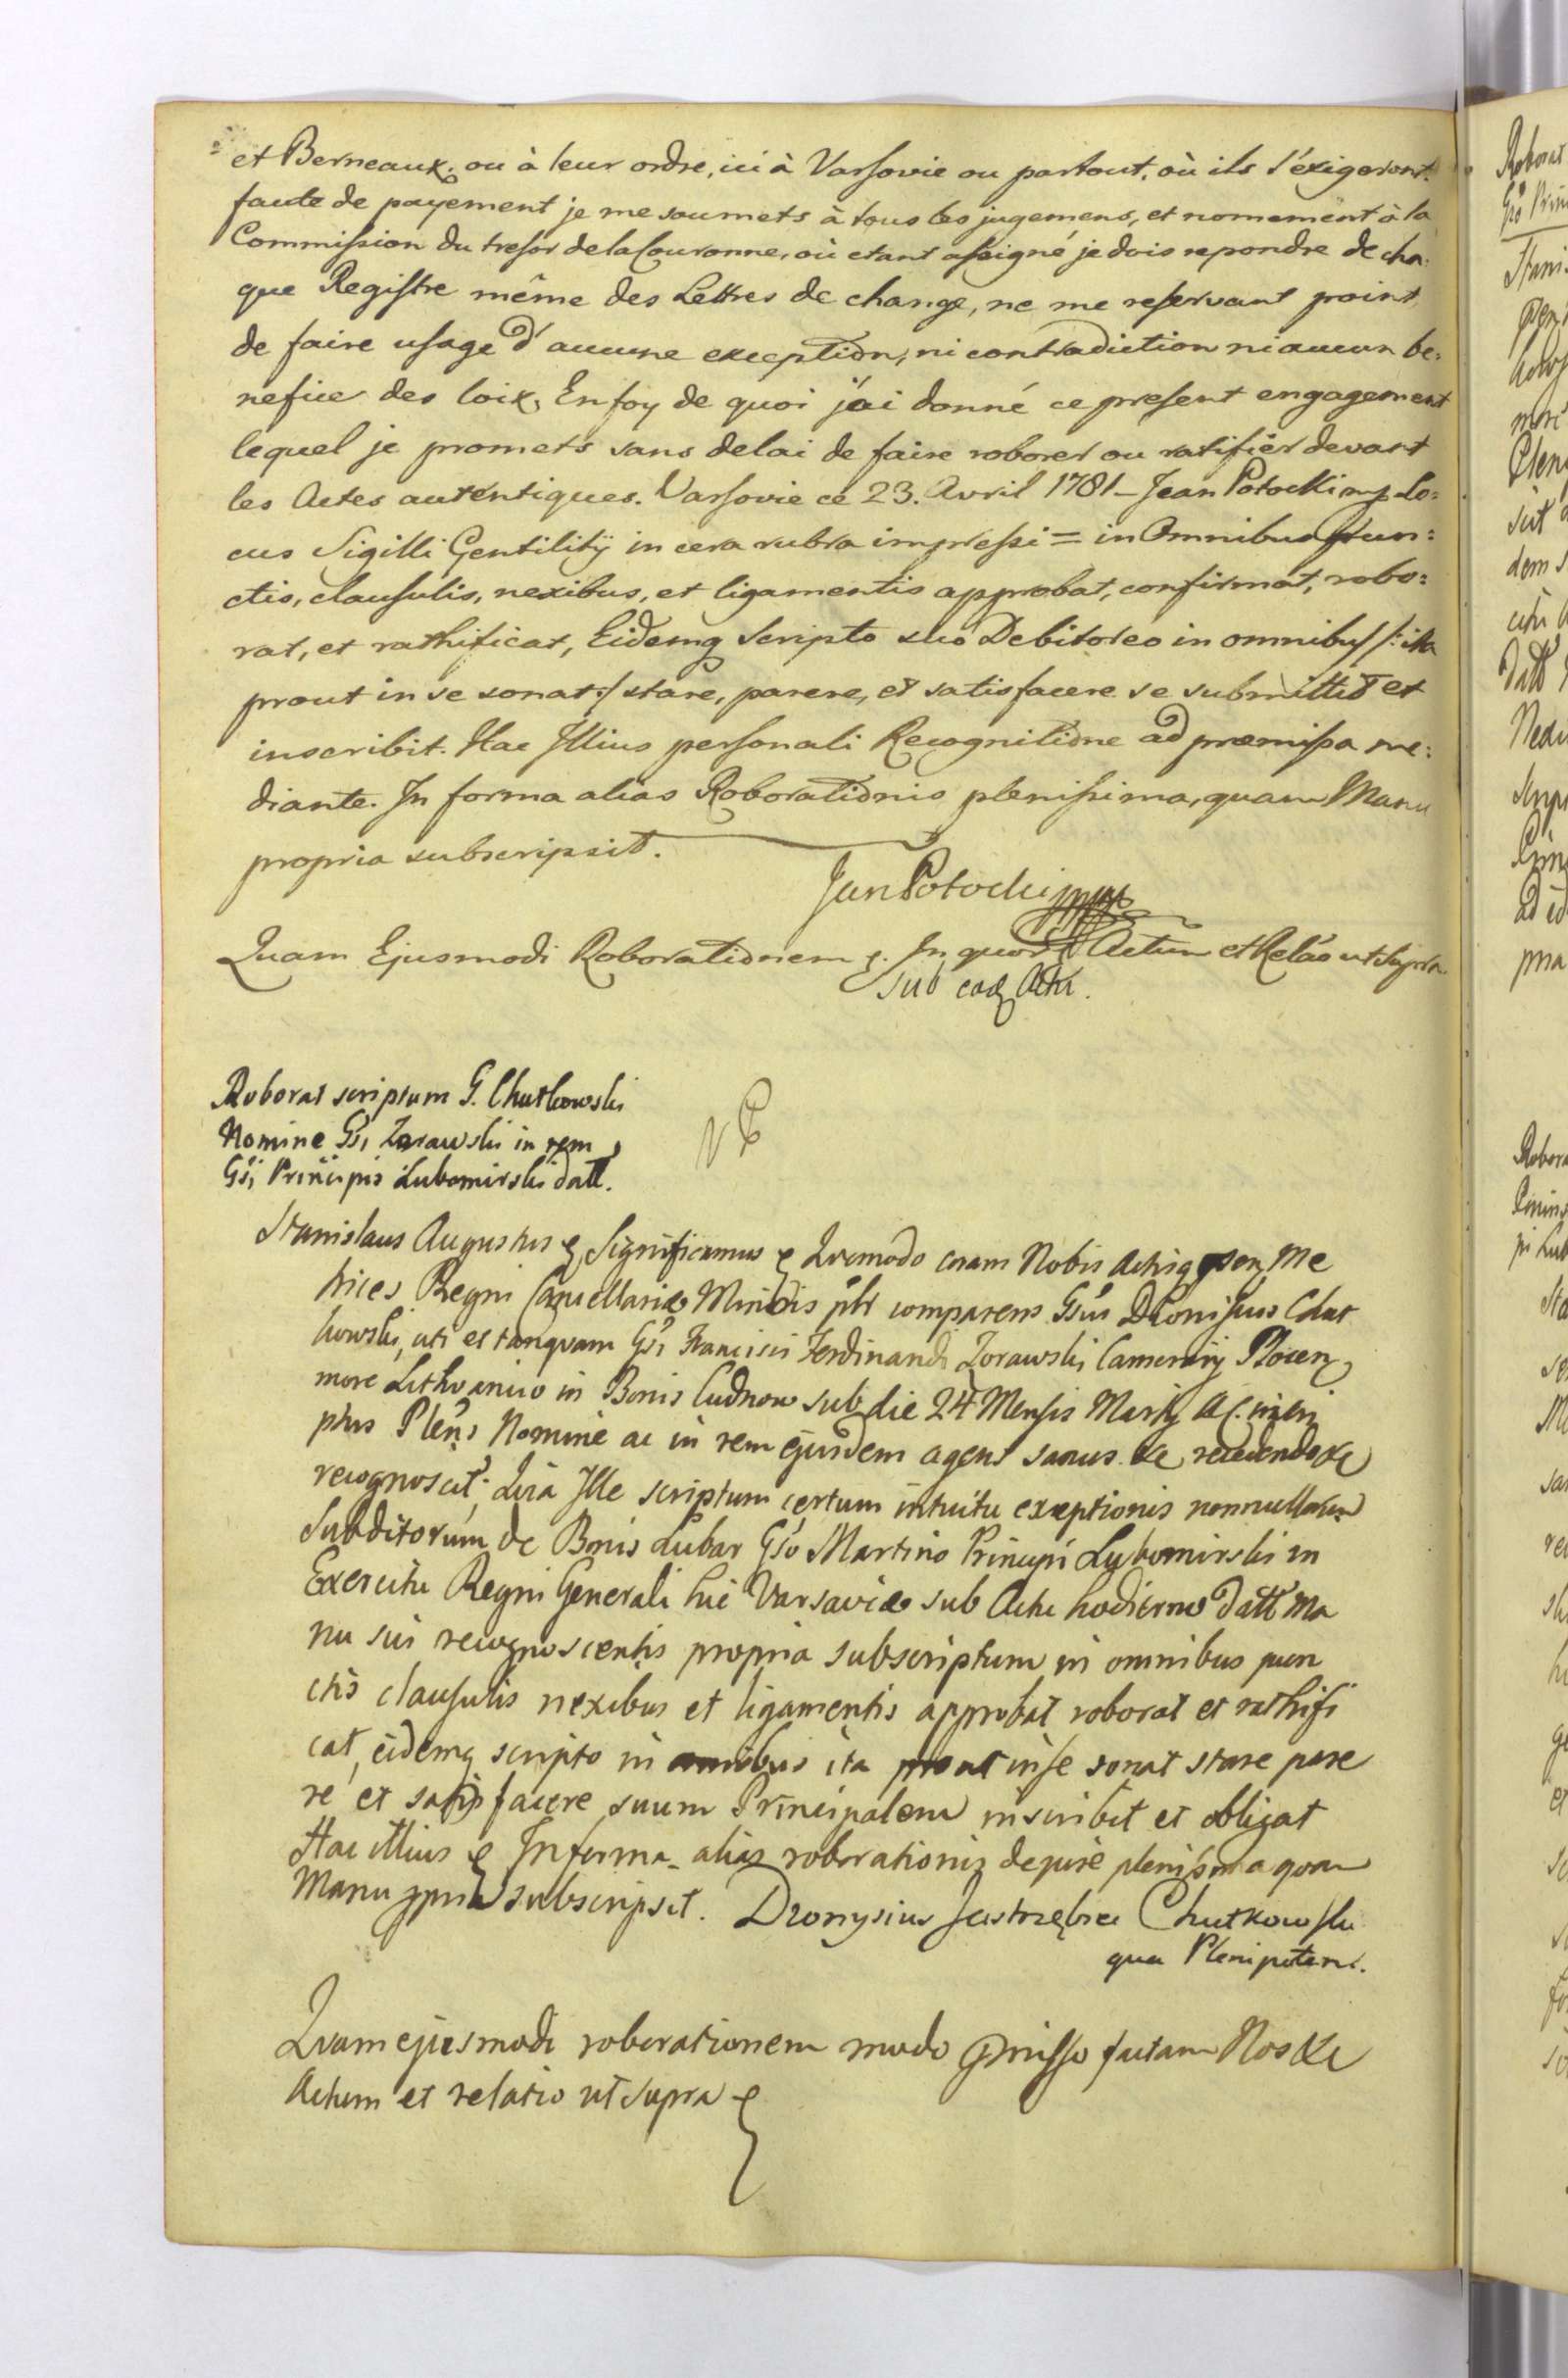 et Berneaux. ou à leur ordre, ici à Varsovie ou partout, où ils l'exigeront.
faute de payement je me soumets à tous les jugemens, et nomement à la
Commission du tresor de la Couronne, où etant assigné je dois repondre de cha:
que Registre même des Lettres de change, ne me reservant point
de faire usage d'aucune exception, ni contradiction ni aucun be:
nefice des loix, En foy de quoi j'ai donné ce present engagement
lequel je promets sans delai de faire roborer ou ratifier devant
les Actes autentiques. Varsovie ce 23. Avril 1781 - Jean Potocki mp Lo:
cus Sigilli Gentilitÿ in cera rubra impressi = in Omnibus Pun:
ctis, clausulis, nexibus, et ligamentis approbat, confirmat, robo:
rat, et rathificat, Eidemq Scripto suo Debitoreo in omnibus /: ita
prout in se sonat :/ stare, parere, et satisfacere se submittit et
inscribit. Hac Illius personali Recognitione ad præmissa me:
diante. In forma alias Roborationis plenissima, quam Manu
propria subscripsit.
Jan Potocki mp
Quam Ejusmodi Roborationem In quor Actum et Relao ut supra
Sub eod Actu.
Roborat scriptum G. Chutkowski
Nomine Gsi Zorawski in rem
Gsi Principis Lubomirski datt.
Stanislaus Augustus Significamus Quomodo coram Nobis Actisq psen Me
trices Regni Cancellariæ Minoris plr comparens Gsus Dionisius Chut
kowski, uti et tanquam Gsi Francisci Ferdinandi Zorawski Camerarij Plocen
more Lithvanico in Bonis Cudnow sub die 24 Mensis Martij A C
ptus Plens Nomine ac in rem ejusdem agens sanus &c recedendo &c
recognoscit; Quia Ille scriptum certum intuitu exceptionis nonnullorum
Subditorum de Bonis Lubar Gso Martino Principi Lubomirski in
Exercitu Regni Generali hic Varsaviæ sub Actu hodierno datt Ma
nu sui recognoscentis propria subscriptum in omnibus pun
ctis clausulis nexibus et ligamentis approbat roborat et rathifi
cat, eidemq scripto in omnibus ita prout in se sonat stare pare
re et satisfacere suum Principalem inscribit et obligat
Hac illius In forma alias roborationis de jure plenissima quam
Manu ppria subscripsit. Dionysius Jastrzębiec Chutkowski
qua Plenipotens.
Quam ejusmodi roborationem modo pmisso factam Nos &c
Actum et relatio ut supra